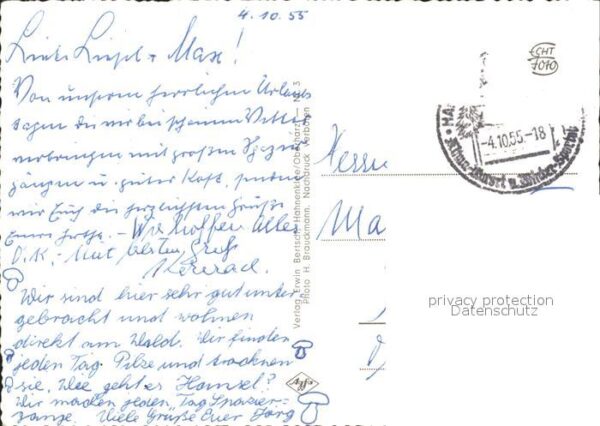 4.10.55
Liebe Liesel + Max!
Von unserm herrlichen Urlaubs
tagen die wir bei schönem Wetter
verbringen mit großen Spazier
gängen u. guter Kost, senden
wir Euch die herzlichsten Grüße
Eure - Wir hoffen Alles
O.K. - Mit besten Gruß
Konrad.
Wir sind hier sehr gut unter
gebracht und wohnen
direkt am Wald. Wir finden
jeden Tag Pilze und trocknen
sie. Wie geht es Hansel?
Wir machen jeden Tag Spazier-
gänge. Viele Grüße Euer Jörg
Verlag Erwin Bertsch Hahnenklee/Oberharz — Nr. 3
Photo H. Brauckmann. Nachdruck verboten
Agfa
Herrn
Ma
ECHT
-4.10.55.-18
privacy protection
Datenschutz